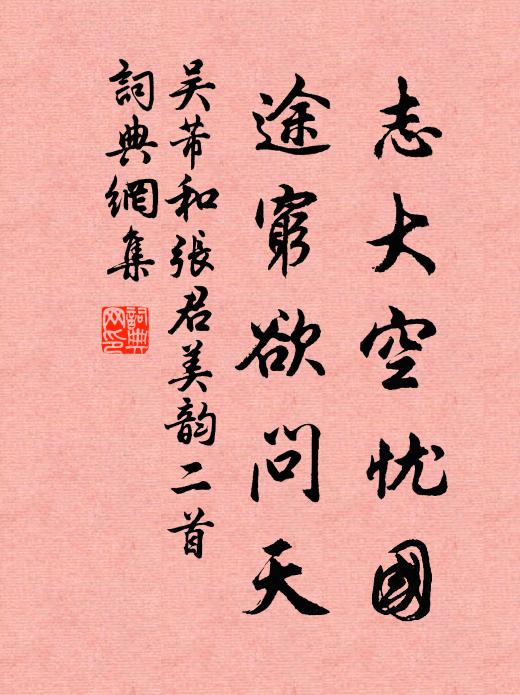 志大空忧國
途窮欲問天
吴芾和張君美韵二首
詞典網集
詞典网印